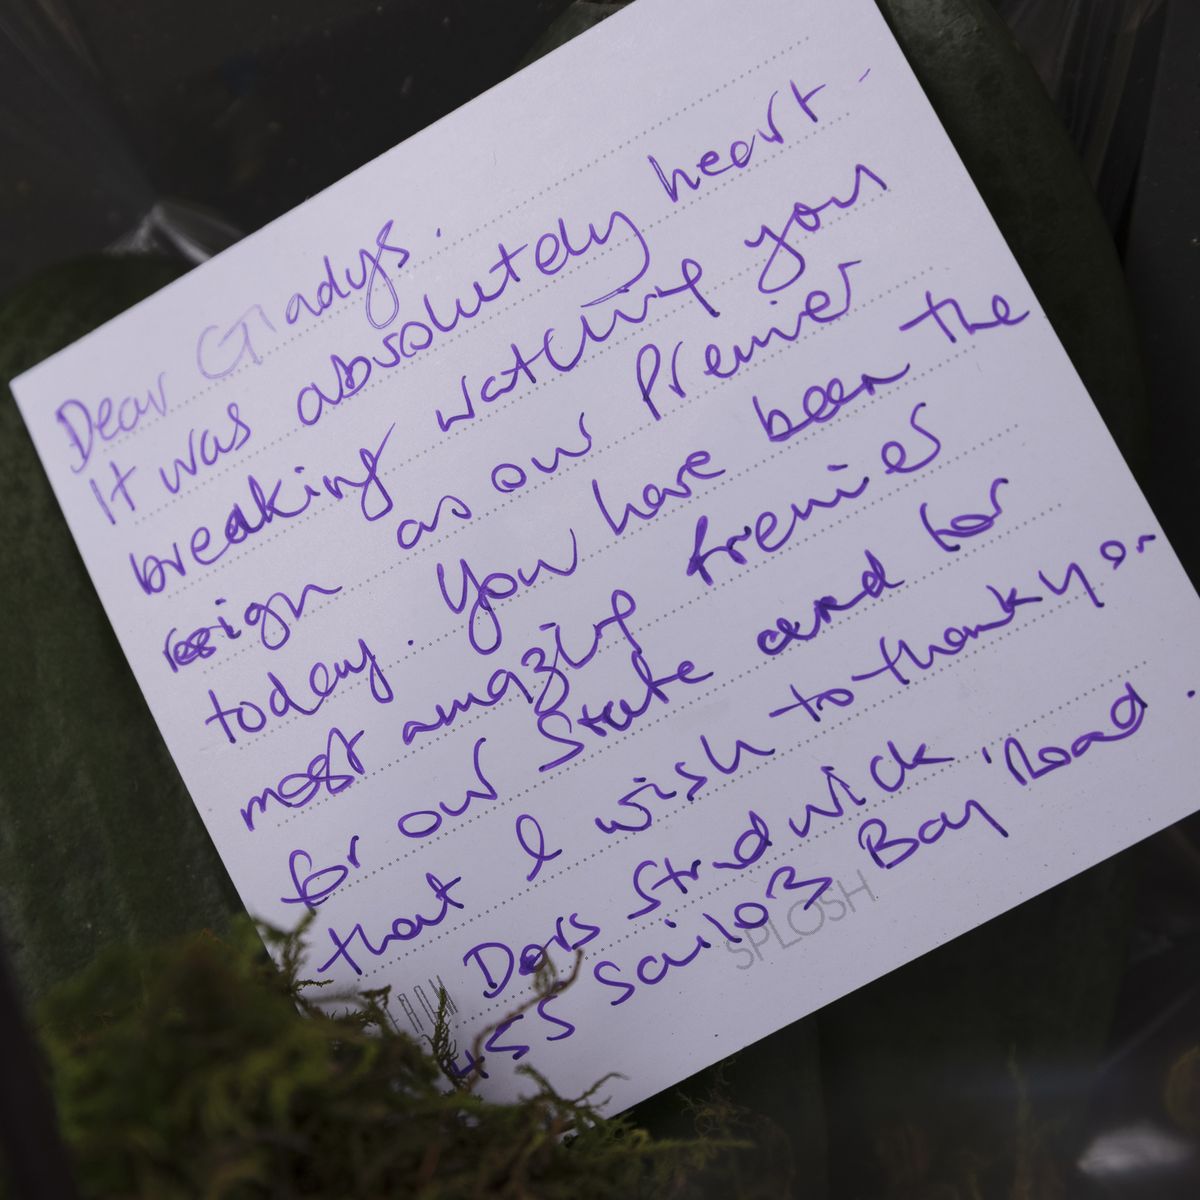 Dear Gladys.
It was absolutely heart-
breaking watching you
resign as our Premier
today. You have been the
most amazing Premier
for our State and for
that I wish to thank you
Strudwick.
455 Sailors Bay Road.
SPLOSH